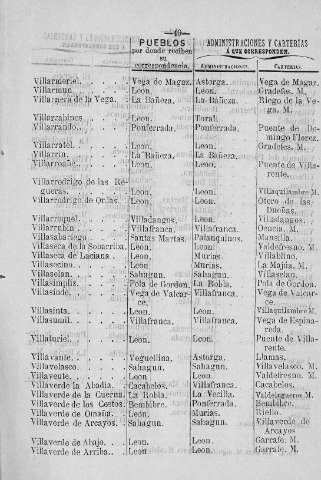 —40—
PUEBLOS
por donde reciben
su
correspondencia.
ADMINISTRACIONES Y CARTERIAS
Á QUE CORRESPONDEN.
ADMINISTRACIONES.
CARTERIAS.
Villarmeriel. Vega de Magaz. Astorga. Vega de Magaz.
Villarmun. Leon. Leon. Gradefes. M.
Villarnera de la Vega. La Bañeza. La Bañeza. Riego de la Vega. M.
Villarrabines. Leon. Toral.
Villarrando. Ponferrada. Ponferrada. Puente de Domingo Florez.
Villarratel. Leon. Leon. Gradefes. M.
Villarrin. La Bañeza. La Bañeza.
Villarroañe. Leon. Leon. Puente de Villarente.
Villarrodrigo de las Regueras. Leon. Leon. Villaquilambre M.
Villarrodrigo de Ordas. Leon. Leon. Otero de las Dueñas.
Villarroquel. Villadangos. Leon. Villadangos. M.
Villarrubin. Villafranca. Villafranca. Oencia. M.
Villasabariego. Santas Martas. Palanquinos. Mansilla.
Villaseca de la Sobarriba. Leon. Leon. Valdefresno. M.
Villaseca de Laciana. Leon. Murias. Villablino.
Villasecino. Leon. Murias. La Majúa. M.
Villaselan. Sahagun. Sahagun. Villaselan.
Villasimpliz. Pola de Gordon. La Robla. Pola de Gordon.
Villasinde. Vega de Valcarce. Villafranca. Vega de Valcarce.
Villasinta. Leon. Leon. Villaquilambre M.
Villasumil. Villafranca. Villafranca. Vega de Espinareda
Villaturiel. Leon. Leon. Puente de Villarente.
Villavante. Veguellina. Astorga. Llamas.
Villavelasco. Sahagun. Sahagun. Villavelasco. M.
Villavente. Leon. Leon. Valdefresno. M.
Villaverde la Abadia. Cacabelos. Villafranca. Cacabelos.
Villaverde de la Cuerna. La Robla. La Vecilla. Valdelugueros M.
Villaverde de los Cestos. Bembibre. Ponferrada. Bembibre.
Villaverde de Omaña. Leon. Murias. Riello.
Villaverde de Arcayos. Sahagun. Sahagun. Villaverde de Arcayos
Villaverde de Abajo. Leon. Leon. Garrafe. M.
Villaverde de Arriba. Leon. Leon. Garrafe. M.